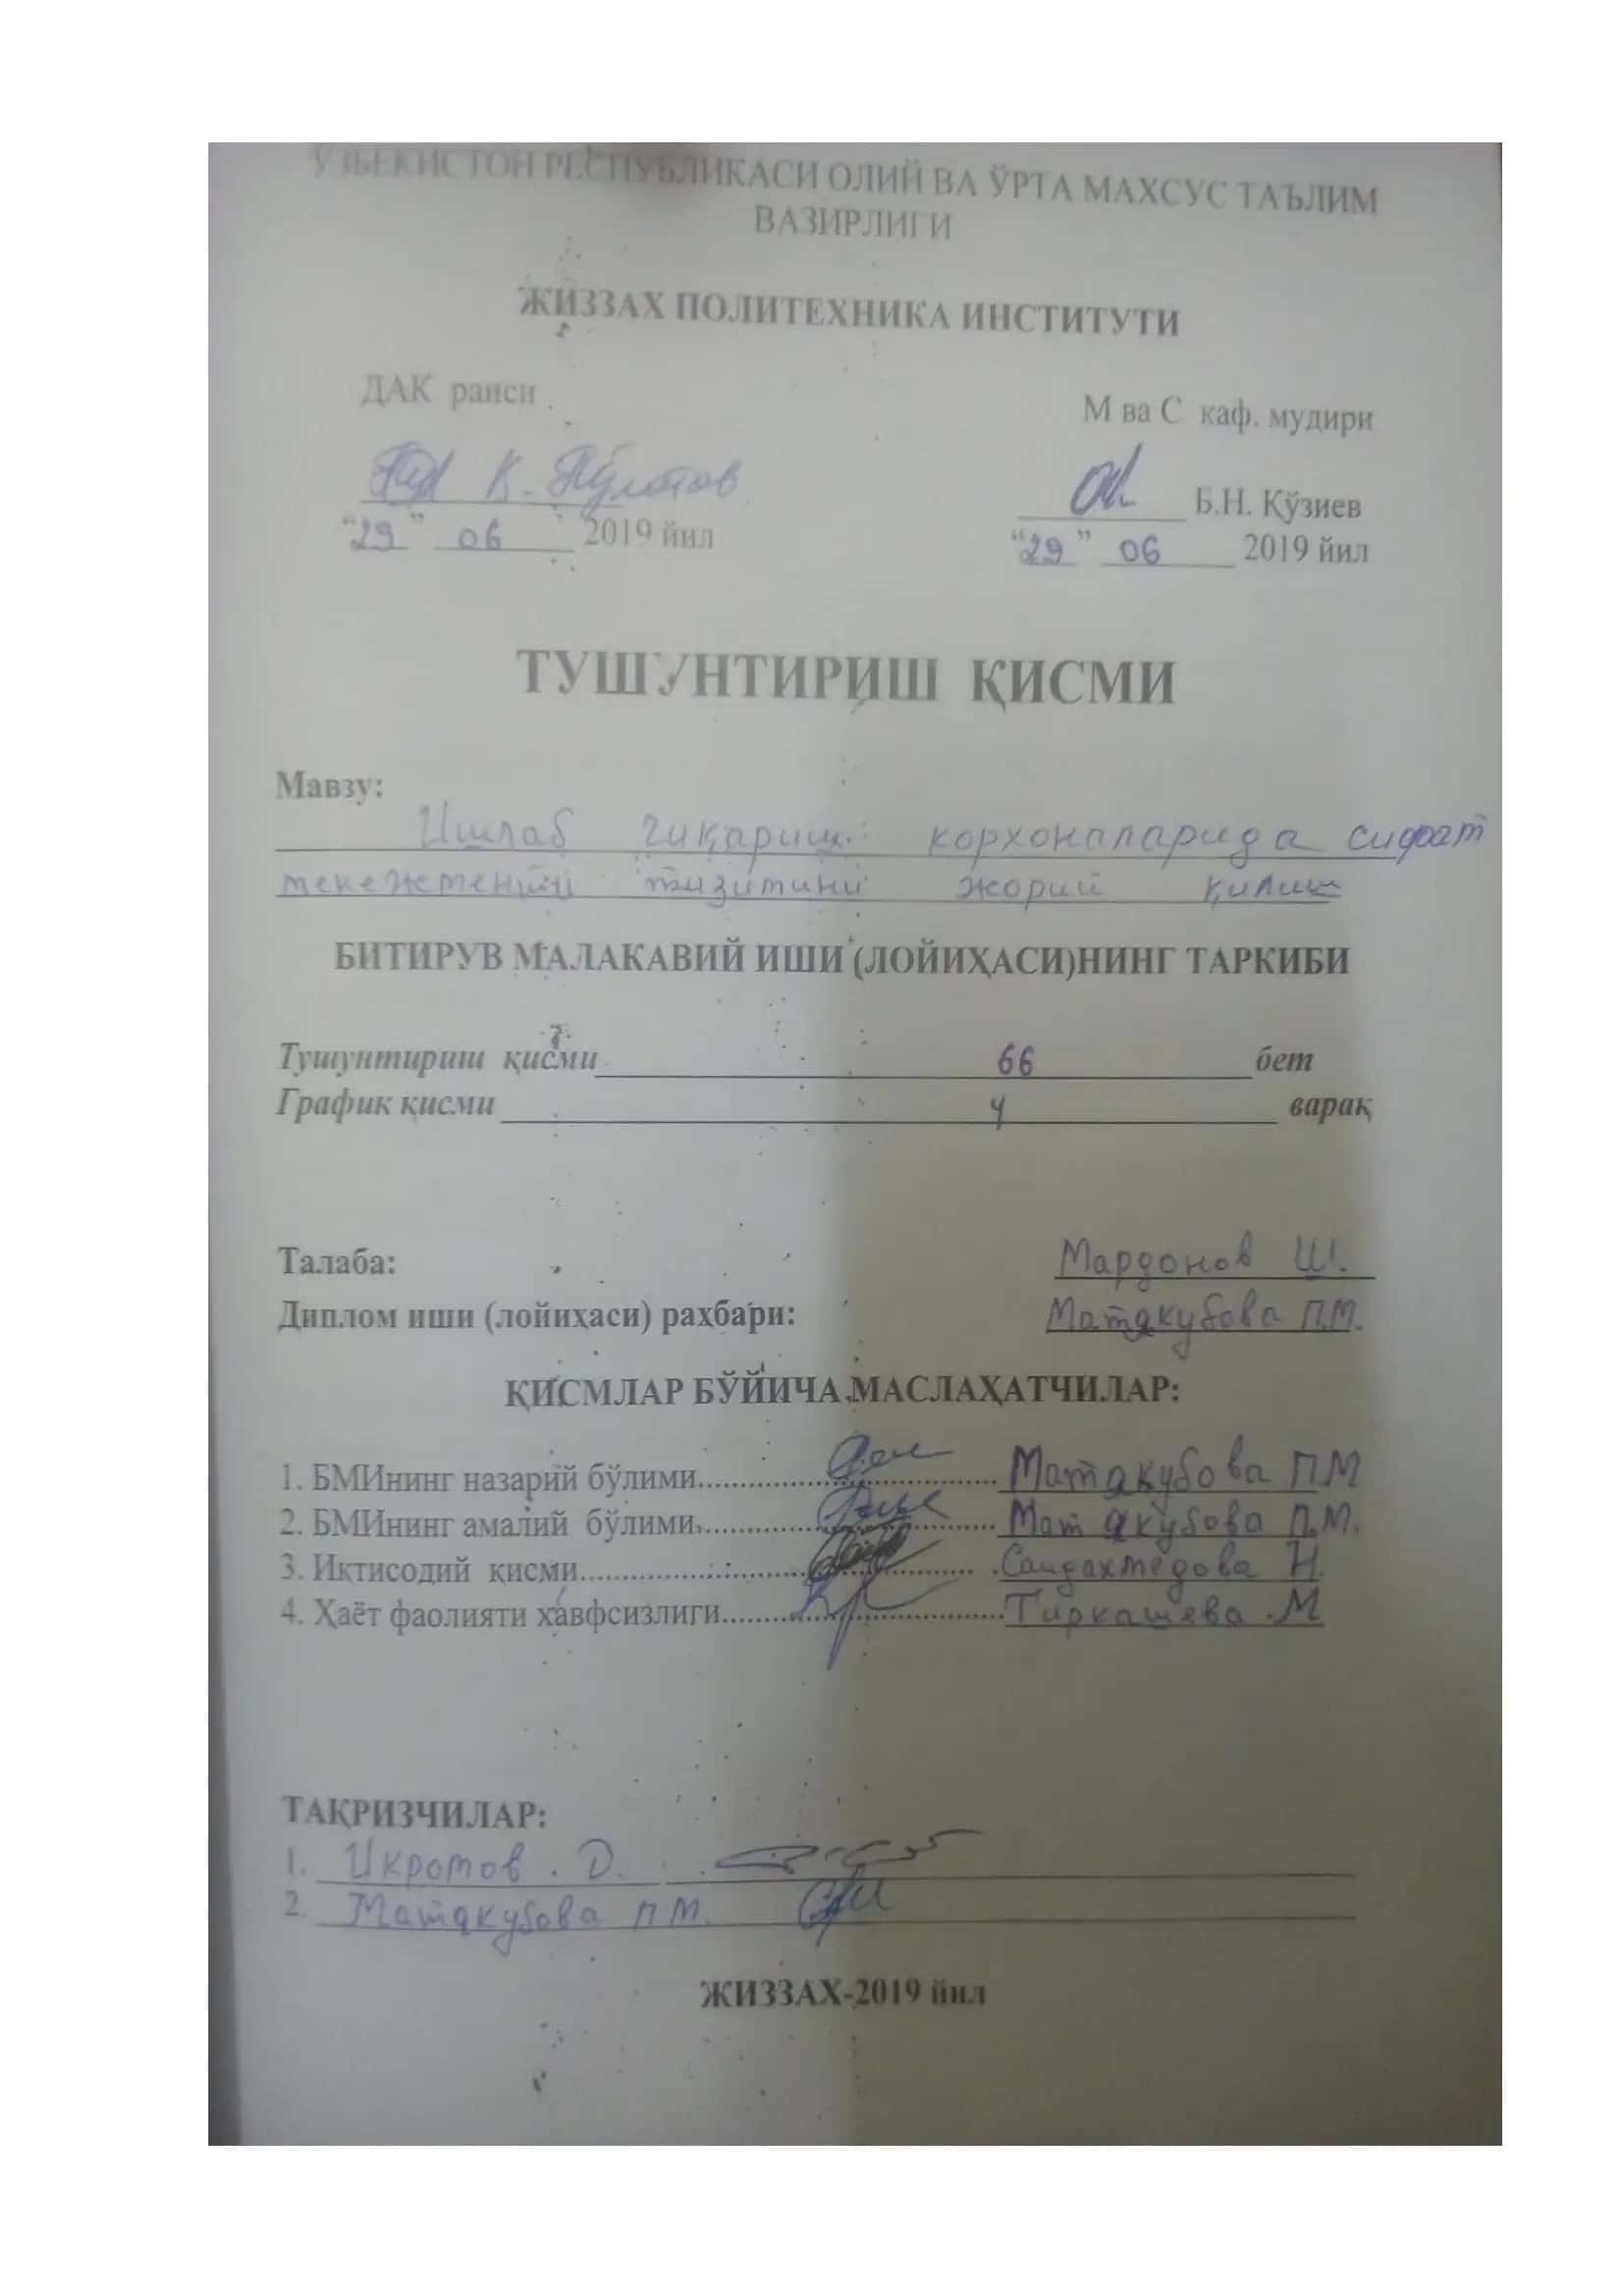 ЎЗБЕКИСТОН РЕСПУБЛИКАСИ ОЛИЙ ВА ЎРТА МАХСУС ТАЪЛИМ
ВАЗИРЛИГИ
ЖИЗЗАХ ПОЛИТЕХНИКА ИНСТИТУТИ
ДАК раиси
М ва С каф. мудири
К. Пўлатов
Б.Н. Қўзиев
“29” 06 2019 йил
“29” 06 2019 йил
ТУШУНТИРИШ ҚИСМИ
Мавзу:
Ишлаб чиқариш корхоналарида сифат
менежменти тизимини жорий қилиш
БИТИРУВ МАЛАКАВИЙ ИШИ (ЛОЙИҲАСИ)НИНГ ТАРКИБИ
Тушунтириш қисми 66 бет
График қисми 4 варақ
Талаба: Мардонов Ш.
Диплом иши (лойиҳаси) раҳбари: Матякубова П.М.
ҚИСМЛАР БЎЙИЧА МАСЛАҲАТЧИЛАР:
1. БМИнинг назарий бўлими.................... Матякубова П М
2. БМИнинг амалий бўлими.................... Матякубова П.М.
3. Иқтисодий қисми.................... Саидахмедова Н.
4. Ҳаёт фаолияти хавфсизлиги.................... Тиркашева М
ТАҚРИЗЧИЛАР:
1. Икромов . Д.
2. Матякубова П М.
ЖИЗЗАХ-2019 йил